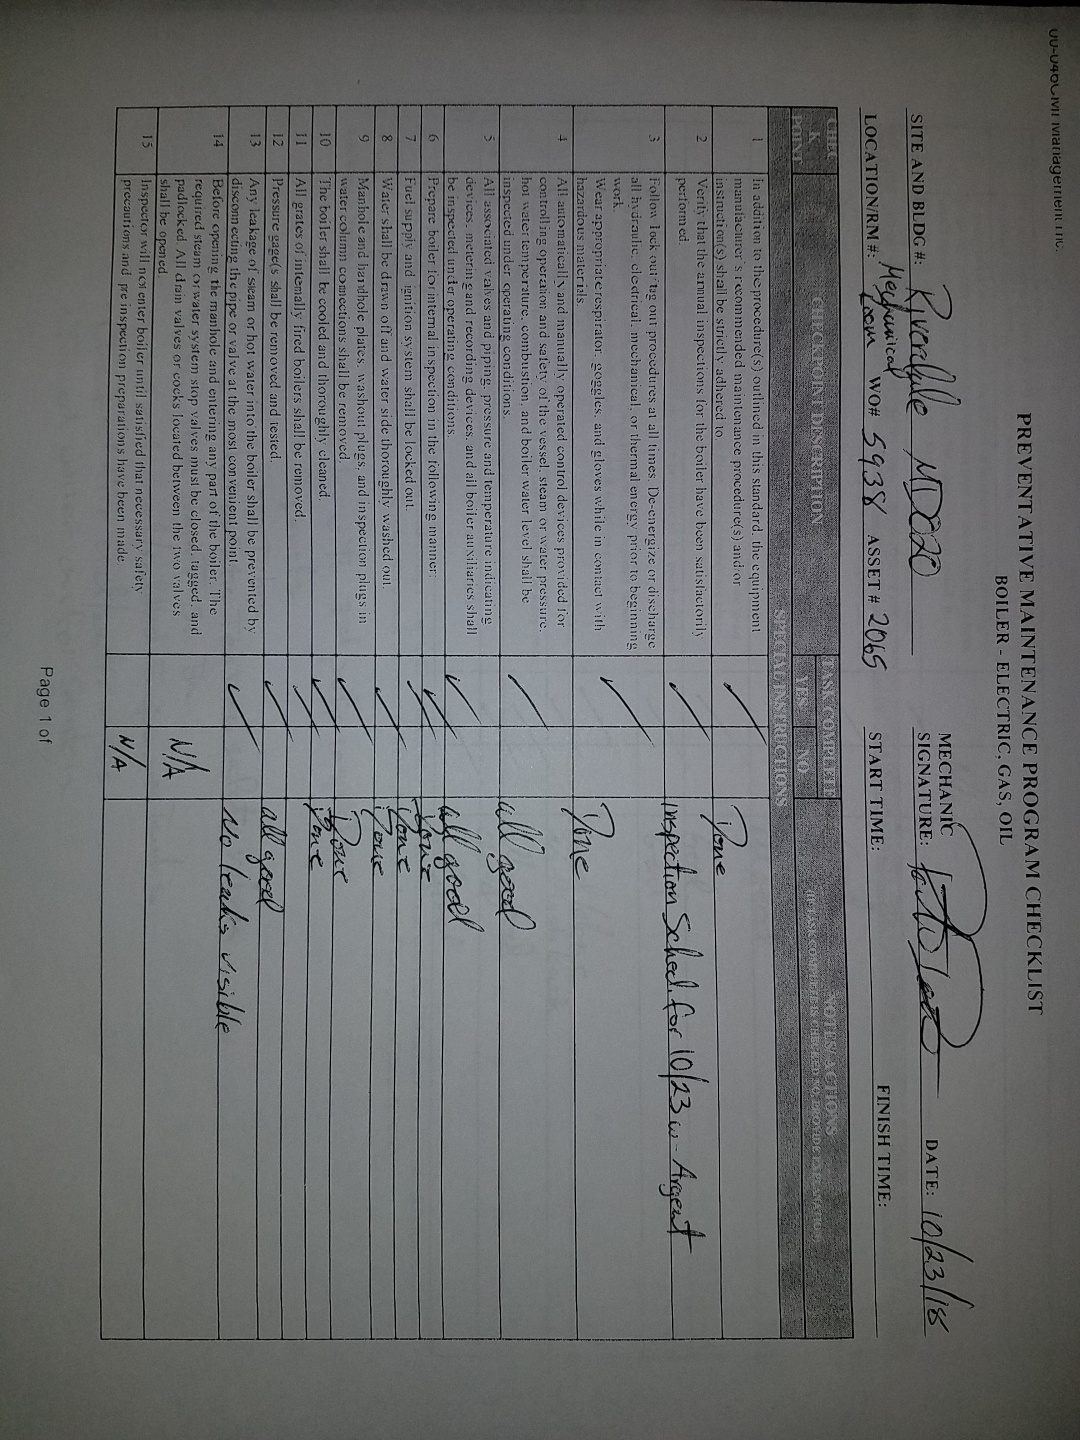 PREVENTATIVE MAINTENANCE PROGRAM CHECKLIST
BOILER - ELECTRIC, GAS, OIL
SITE AND BLDG #: Riverdale MD020
MECHANIC
SIGNATURE:
DATE: 10/23/18
LOCATION/RM #: Mechanical Room WO# 5938 ASSET # 2065
START TIME:
FINISH TIME:
CHEC
K
POINT
CHECKPOINT DESCRIPTION
TASK COMPLETE
YES
NO
NOTES/ACTIONS
SPECIAL INSTRUCTIONS
1
In addition to the procedure(s) outlined in this standard, the equipment
manufacturer's recommended maintenance procedure(s) and/or
instruction(s) shall be strictly adhered to.
Done
2
Verify that the annual inspections for the boiler have been satisfactorily
performed.
Inspection Sched. for 10/23 w- Argent
3
Follow lock out/tag out procedures at all times. De-energize or discharge
all hydraulic, electrical, mechanical, or thermal energy prior to beginning
work.
Wear appropriate respirator, goggles, and gloves while in contact with
hazardous materials.
Done
4
All automatically and manually operated control devices provided for
controlling operation and safety of the vessel, steam or water pressure,
hot water temperature, combustion, and boiler water level shall be
inspected under operating conditions.
all good
5
All associated valves and piping, pressure and temperature indicating
devices, metering and recording devices, and all boiler auxiliaries shall
be inspected under operating conditions.
all good
6
Prepare boiler for internal inspection in the following manner:
Done
7
Fuel supply and ignition system shall be locked out.
Done
8
Water shall be drawn off and water side thoroughly washed out.
Done
9
Manhole and handhole plates, washout plugs, and inspection plugs in
water column connections shall be removed.
Done
10
The boiler shall be cooled and thoroughly cleaned.
Done
11
All grates of internally fired boilers shall be removed.
Done
12
Pressure gage(s) shall be removed and tested.
all good
13
Any leakage of steam or hot water into the boiler shall be prevented by
disconnecting the pipe or valve at the most convenient point.
No leaks visible
14
Before opening the manhole and entering any part of the boiler. The
required steam or water system stop valves must be closed, tagged, and
padlocked. All drain valves or cocks located between the two valves
shall be opened.
N/A
15
Inspector will not enter boiler until satisfied that necessary safety
precautions and pre inspection preparations have been made
N/A
Page 1 of